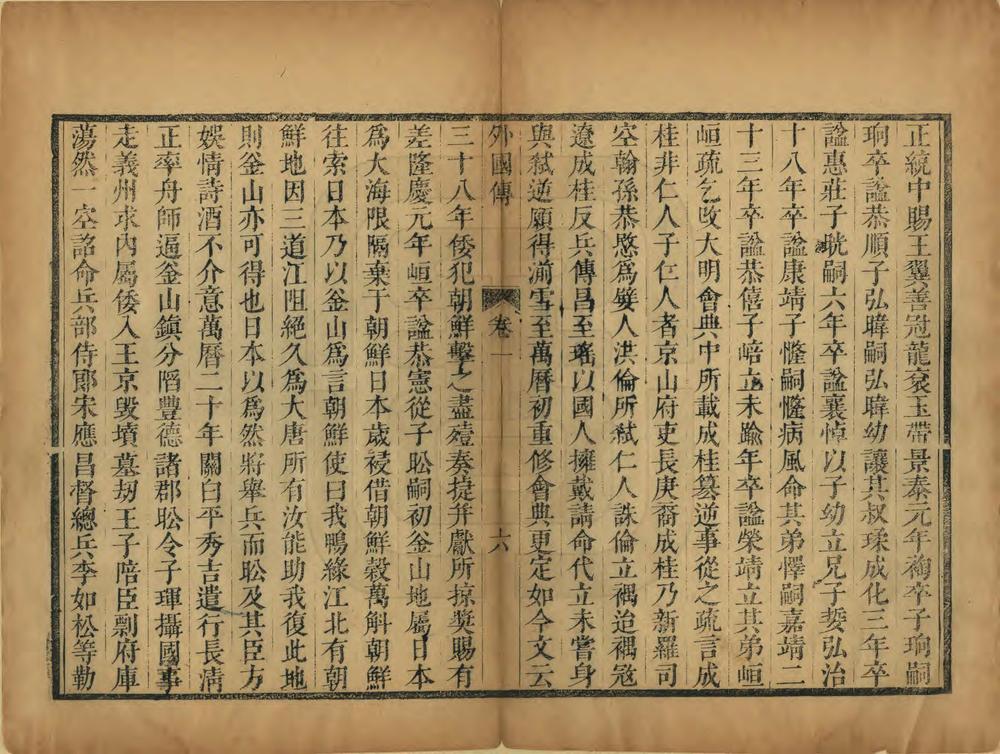 正統中賜王翼善冠龍袞玉帶景泰元年裪卒子珦嗣
珦卒謚恭順子弘暐嗣弘暐幼讓其叔瑈成化三年卒
謚惠莊子晄嗣六年卒謚襄悼以子幼立兄子娎弘治
十八年卒謚康靖子㦕嗣㦕病風命其弟懌嗣嘉靖二
十三年卒謚恭僖子峼立未踰年卒謚榮靖立其弟峘
峘疏乞改大明會典中所載成桂簒逆事從之疏言成
桂非仁人子仁人者京山府吏長庚裔成桂乃新羅司
空翰孫恭愍爲嬖人洪倫所弒仁人誅倫立禑迨禑寇
遼成桂反兵傳昌至瑤以國人擁戴請命代立未嘗身
與弒逆願得湔雪至萬曆初重修會典更定如今文云
外國傳　卷一　六
三十八年倭犯朝鮮擊之盡殪奏捷并獻所掠獎賜有
差隆慶元年峘卒謚恭憲從子昖嗣初釜山地屬日本
爲大海限隔棄于朝鮮日本歲祲借朝鮮穀萬斛朝鮮
往索日本乃以釜山爲言朝鮮使曰我鴨緑江北有朝
鮮地因三道江阻絕久爲大唐所有汝能助我復此地
則釜山亦可得也日本以爲然將舉兵而昖及其臣方
娛情詩酒不介意萬曆二十年關白平秀吉遣行長清
正率舟師逼釜山鎮分陷豐德諸郡昖令子琿攝國事
走義州求內屬倭入王京毀墳墓刼王子陪臣剽府庫
蕩然一空詔命兵部侍郎宋應昌督總兵李如松等勒